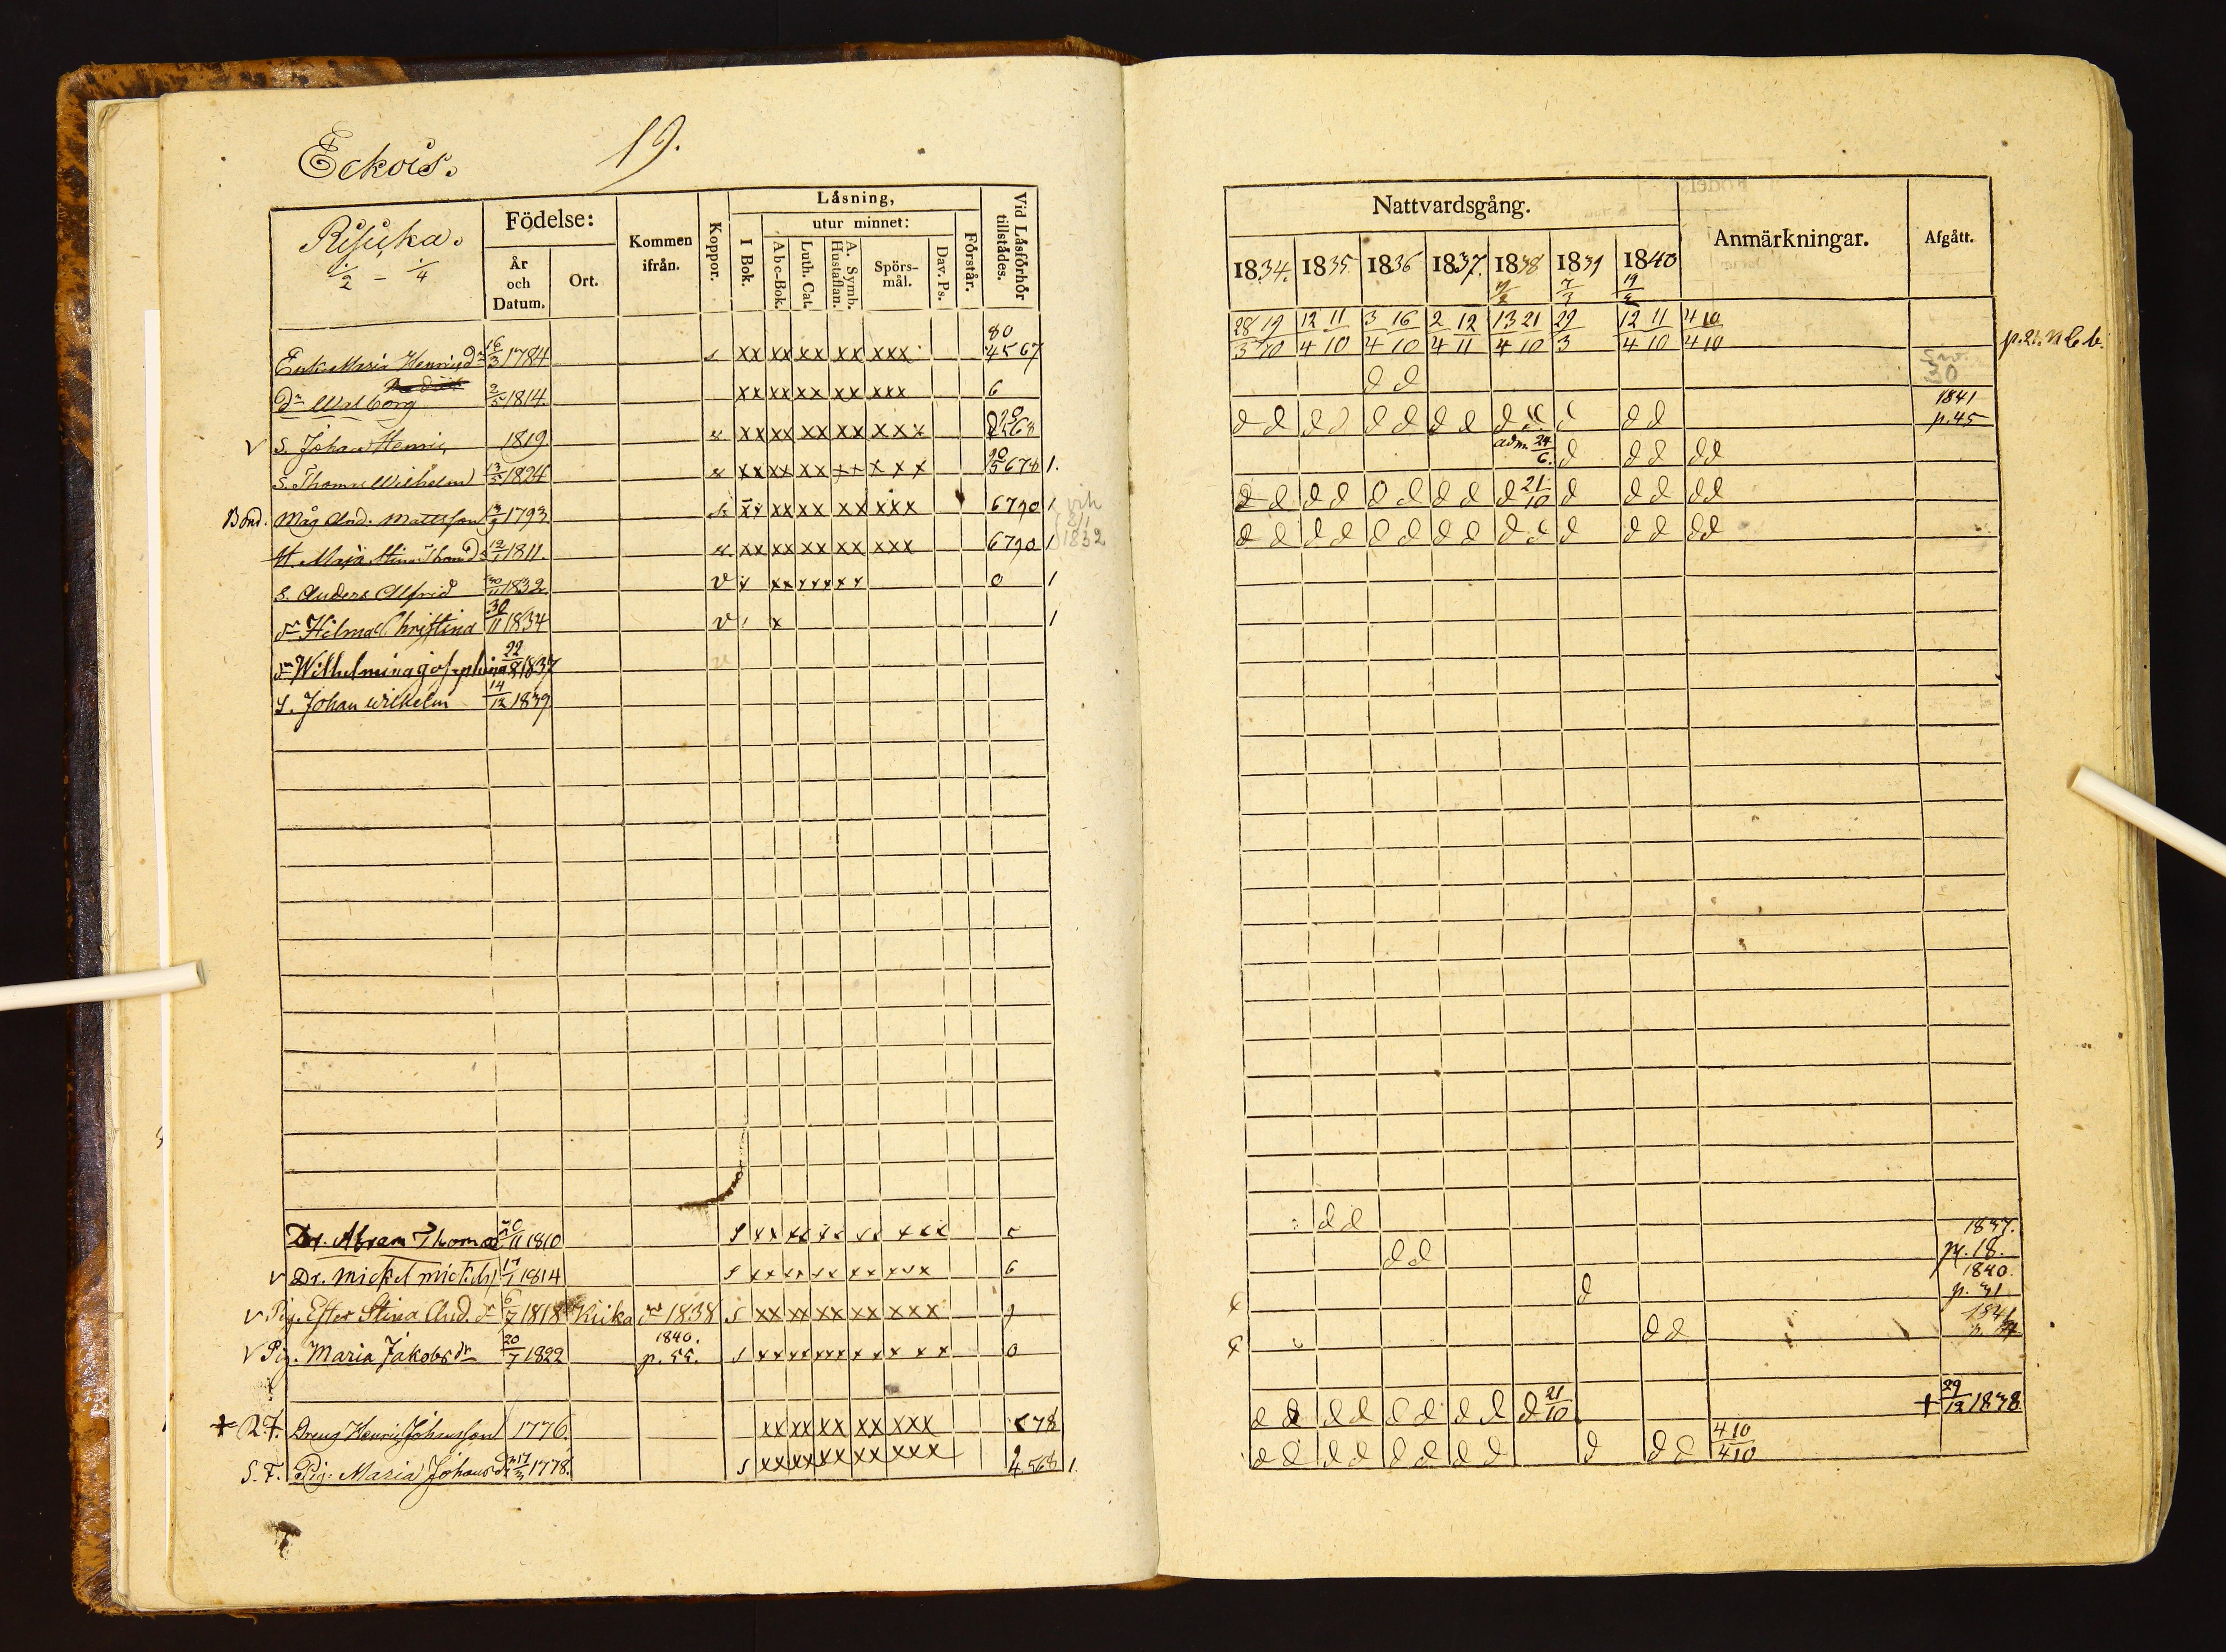 Eckois. 19.
Risuka.
1/2 = 1/4
Födelse:
År och Datum.
Ort.
Kommen ifrån.
Koppor.
Låsning,
I Bok.
utur minnet:
Abc-Bok.
Luth. Cat.
A. Symb. Hustaflan.
Spörsmål.
Dav. Ps.
Förstår.
Vid Låsförhör tillstådes.
Nattvardsgång.
1834. 1835. 1836 1837. 1838 1839 1840
Anmärkningar.
Afgått.
80
28/3 19/10 12/4 11/10 3/4 16/10 2/4 12/11 13/4 21/10 29/3 12/4 11/10 4/4 10/10
Enk. Maria Henrics dr 16/3 1784 s xx xx xx xx xxx 4567 p. 21. N C b.
dr Walborg 2/5 1814 xx xx xx xx xxx 6 d d 30
v S. Johan Henric 1819 xx xx xx xx xxx 68 d d d d d d d d d d d 1841 p. 45
S. Thomas Wilhelm 13/5 1824 xx xx xx xx xxx 678 1. adm. 24/6. d d d d d
Bond. Måg And. Mattsson 1793 xx xx xx xx xxx 6790 1 d d d d d d d d d 21/10 d d d d d
H. Maja Stina Thom. dr 12/1 1811. xx xx xx xx xxx 6790 1 1832 d d d d d d d d d d d d d d d
S. Anders Alfrid 1832 v x xx xx xx 0 1
dr Hilma Christina 30/11 1834 v x 1
dr Wilhelmina Josephina 22/8 1837
S. Johan Wilhelm 14/12 1839
Dr. Abram Thomas 20/11 1810 s xx xx xx xx xxx 5 d d 1837.
v Dr. Mickel Mickels 17/1 1814 s xx xx xx xx xxx 6 d d p. 18.
v Pig. Ester Stina And. dr 6/7 1818 Kuka 1838 s xx xx xx xx xxx 9 d 1840. p. 31
v Pig. Maria Jakobs dr 20/7 1822 1840. p. 55. s xx xx xx xx xxx 0 d d 1841
+ R.F. Dreng Henric Johansson 1776. xx xx xx xx xxx 78 d d d d d d d d d 21/10 + 29/12 1838
S.F. Pig. Maria Johans dr 1778. s xx xx xx xx xxx 4568 1. d d d d d d d d d d d 4/4 10/10